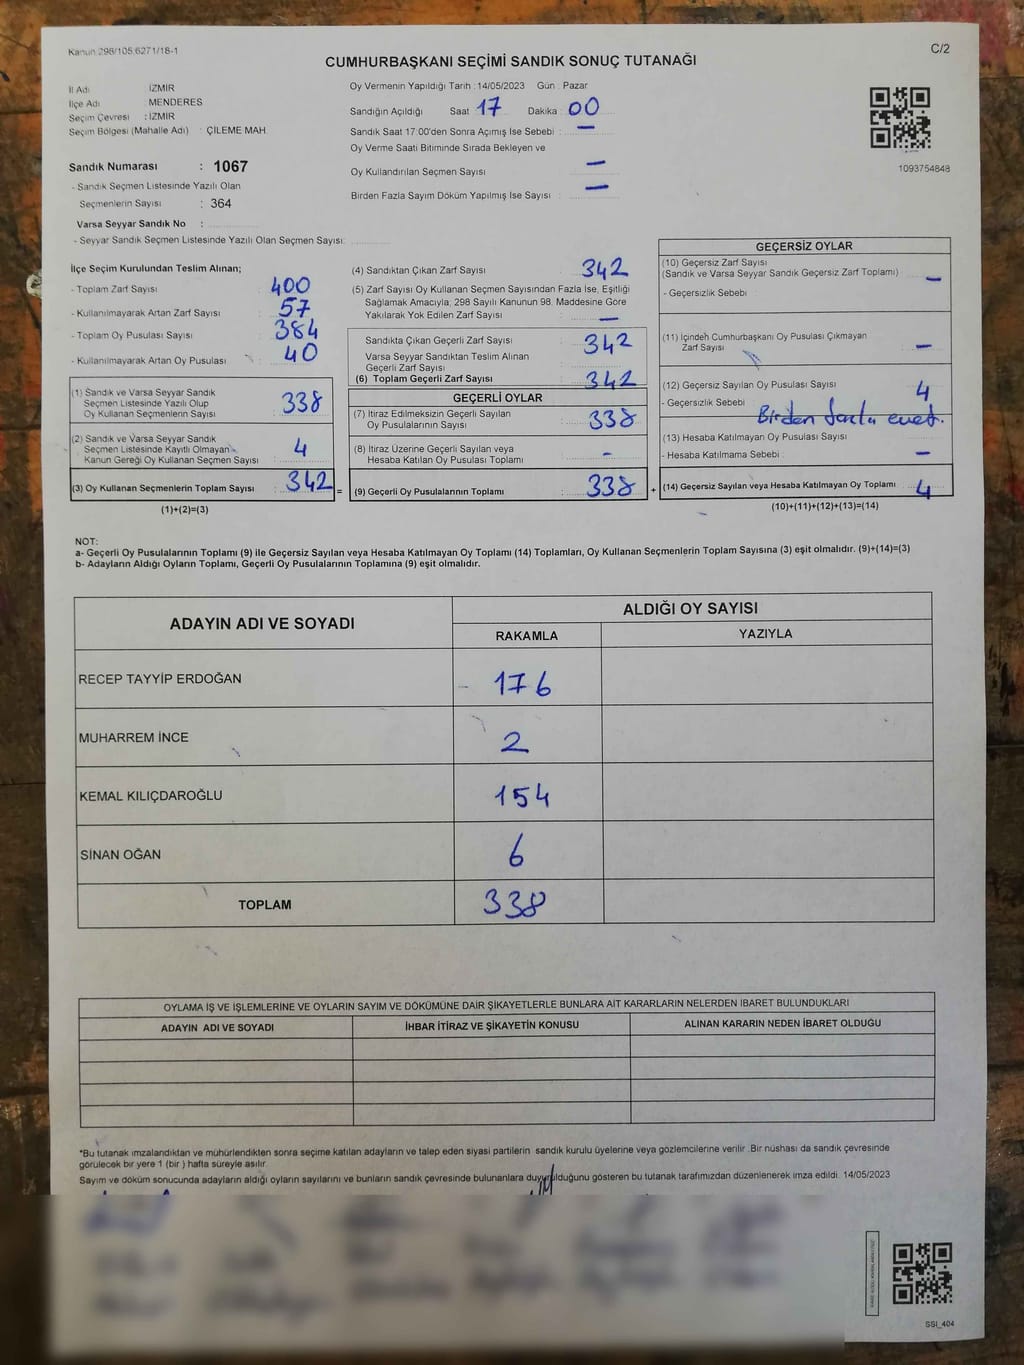 Kanun 298/105,6271/18-1
C/2
CUMHURBAŞKANI SEÇİMİ SANDIK SONUÇ TUTANAĞI
İl Adı İZMİR
İlçe Adı MENDERES
Seçim Çevresi : İZMİR
Seçim Bölgesi (Mahalle Adı) : ÇİLEME MAH.
Sandık Numarası : 1067
- Sandık Seçmen Listesinde Yazılı Olan
Seçmenlerin Sayısı : 364
Varsa Seyyar Sandık No :
- Seyyar Sandık Seçmen Listesinde Yazılı Olan Seçmen Sayısı:
Oy Vermenin Yapıldığı Tarih : 14/05/2023 Gün : Pazar
Sandığın Açıldığı Saat 17 Dakika 00
Sandık Saat 17:00'den Sonra Açımış İse Sebebi : —
Oy Verme Saati Bitiminde Sırada Bekleyen ve
Oy Kullandırılan Seçmen Sayısı —
Birden Fazla Sayım Döküm Yapılmış İse Sayısı : —
1093754848
İlçe Seçim Kurulundan Teslim Alınan;
- Toplam Zarf Sayısı 400
- Kullanılmayarak Artan Zarf Sayısı : 57
- Toplam Oy Pusulası Sayısı : 384
- Kullanılmayarak Artan Oy Pusulası : 40
(1) Sandık ve Varsa Seyyar Sandık
Seçmen Listesinde Yazılı Olup
Oy Kullanan Seçmenlerin Sayısı : 338
(2) Sandık ve Varsa Seyyar Sandık
Seçmen Listesinde Kayıtlı Olmayan
Kanun Gereği Oy Kullanan Seçmen Sayısı : 4
(3) Oy Kullanan Seçmenlerin Toplam Sayısı : 342 =
(1)+(2)=(3)
(4) Sandıktan Çıkan Zarf Sayısı : 342
(5) Zarf Sayısı Oy Kullanan Seçmen Sayısından Fazla İse, Eşitliği
Sağlamak Amacıyla, 298 Sayılı Kanunun 98. Maddesine Göre
Yakılarak Yok Edilen Zarf Sayısı : —
Sandıkta Çıkan Geçerli Zarf Sayısı : 342
Varsa Seyyar Sandıktan Teslim Alınan
Geçerli Zarf Sayısı :
(6) Toplam Geçerli Zarf Sayısı : 342
GEÇERLİ OYLAR
(7) İtiraz Edilmeksizin Geçerli Sayılan
Oy Pusulalarının Sayısı : 338
(8) İtiraz Üzerine Geçerli Sayılan veya
Hesaba Katılan Oy Pusulası Toplamı : -
(9) Geçerli Oy Pusulalarının Toplamı : 338 +
GEÇERSİZ OYLAR
(10) Geçersiz Zarf Sayısı
(Sandık ve Varsa Seyyar Sandık Geçersiz Zarf Toplamı) : —
- Geçersizlik Sebebi :
(11) İçindeh Cumhurbaşkanı Oy Pusulası Çıkmayan
Zarf Sayısı : —
(12) Geçersiz Sayılan Oy Pusulası Sayısı : 4
- Geçersizlik Sebebi : Birden fazla evet.
(13) Hesaba Katılmayan Oy Pusulası Sayısı :
- Hesaba Katılmama Sebebi : —
(14) Geçersiz Sayılan veya Hesaba Katılmayan Oy Toplamı : 4
(10)+(11)+(12)+(13)=(14)
NOT:
a- Geçerli Oy Pusulalarının Toplamı (9) ile Geçersiz Sayılan veya Hesaba Katılmayan Oy Toplamı (14) Toplamları, Oy Kullanan Seçmenlerin Toplam Sayısına (3) eşit olmalıdır. (9)+(14)=(3)
b- Adayların Aldığı Oyların Toplamı, Geçerli Oy Pusulalarının Toplamına (9) eşit olmalıdır.
ADAYIN ADI VE SOYADI
ALDIĞI OY SAYISI
RAKAMLA YAZIYLA
RECEP TAYYİP ERDOĞAN 176
MUHARREM İNCE 2
KEMAL KILIÇDAROĞLU 154
SİNAN OĞAN 6
TOPLAM 338
OYLAMA İŞ VE İŞLEMLERİNE VE OYLARIN SAYIM VE DÖKÜMÜNE DAİR ŞİKAYETLERLE BUNLARA AİT KARARLARIN NELERDEN İBARET BULUNDUKLARI
ADAYIN ADI VE SOYADI İHBAR İTİRAZ VE ŞİKAYETİN KONUSU ALINAN KARARIN NEDEN İBARET OLDUĞU
*Bu tutanak imzalandıktan ve mühürlendikten sonra seçime katılan adayların ve talep eden siyasi partilerin sandık kurulu üyelerine veya gözlemcilerine verilir. Bir nüshası da sandık çevresinde
görülecek bir yere 1 (bir ) hafta süreyle asılır.
Sayım ve döküm sonucunda adayların aldığı oyların sayılarını ve bunların sandık çevresinde bulunanlara duyurulduğunu gösteren bu tutanak tarafımızdan düzenlenerek imza edildi. 14/05/2023
SSI_404